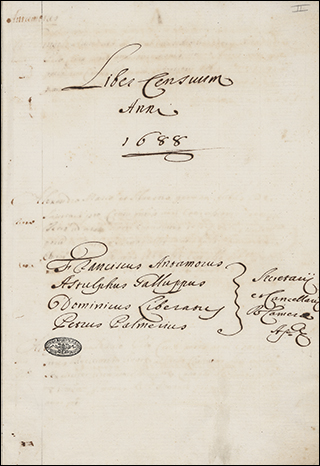 Liber Censuum
Anni
1688
Franciscus Antamorus
Astulphus Galluppus
Dominicus Liberatus
Petrus Palmerius
Secretarij
et Cancellarij
R. Cameræ